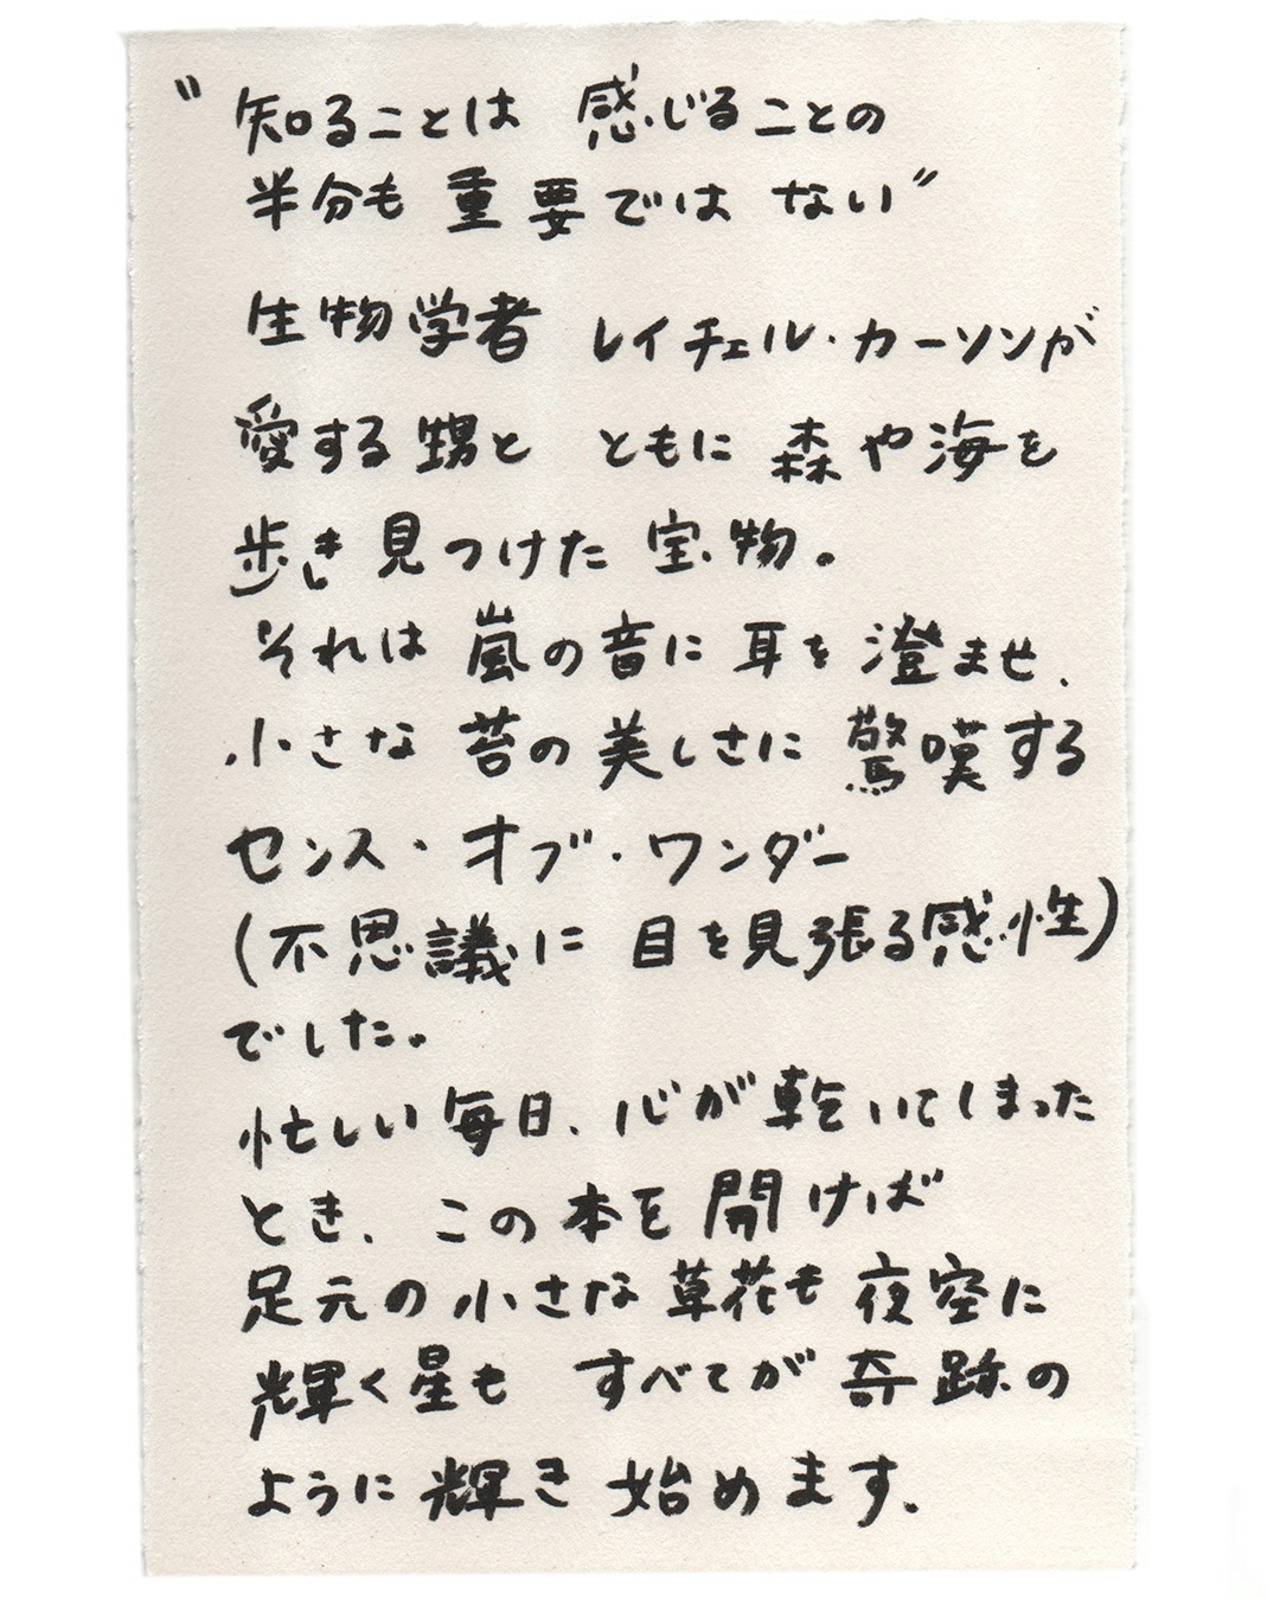 〃知ることは 感じることの
半分も重要ではない〃
生物学者 レイチェル・カーソンが
愛する甥と ともに 森や海を
歩き見つけた宝物。
それは嵐の音に耳を澄ませ、
小さな苔の美しさに驚嘆する
センス・オブ・ワンダー
(不思議に目を見張る感性)
でした。
忙しい毎日、心が乾いてしまった
とき、この本を開けば
足元の小さな草花も夜空に
輝く星も すべてが奇跡の
ように輝き始めます。